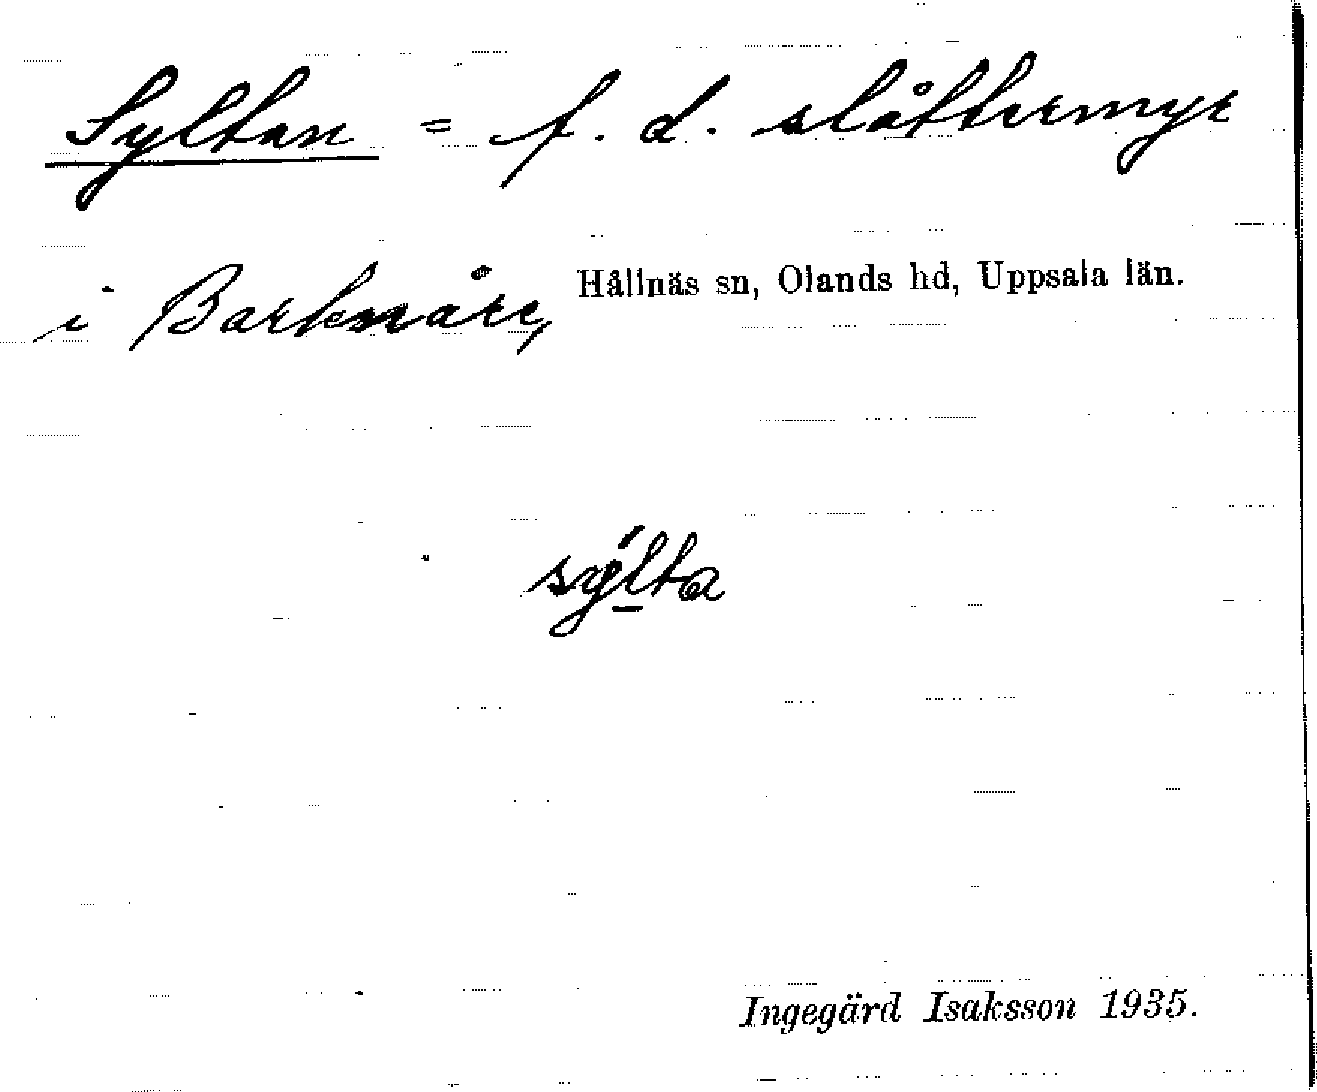 Syltan = f. d. slåttermyr
i Barknåre, Hållnäs sn, Olands hd, Uppsala län.
sýlta
Ingegärd Isaksson 1935.